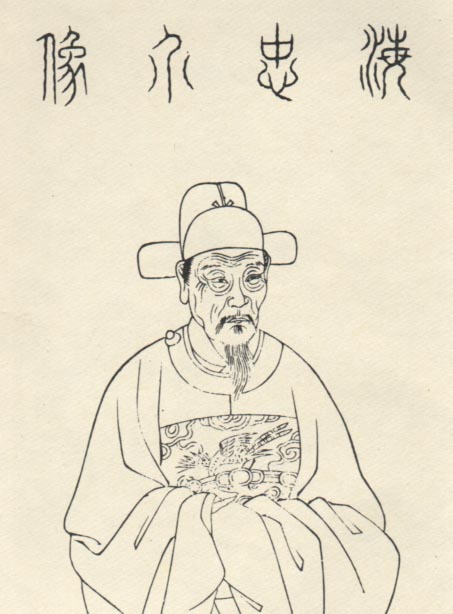 海忠介像